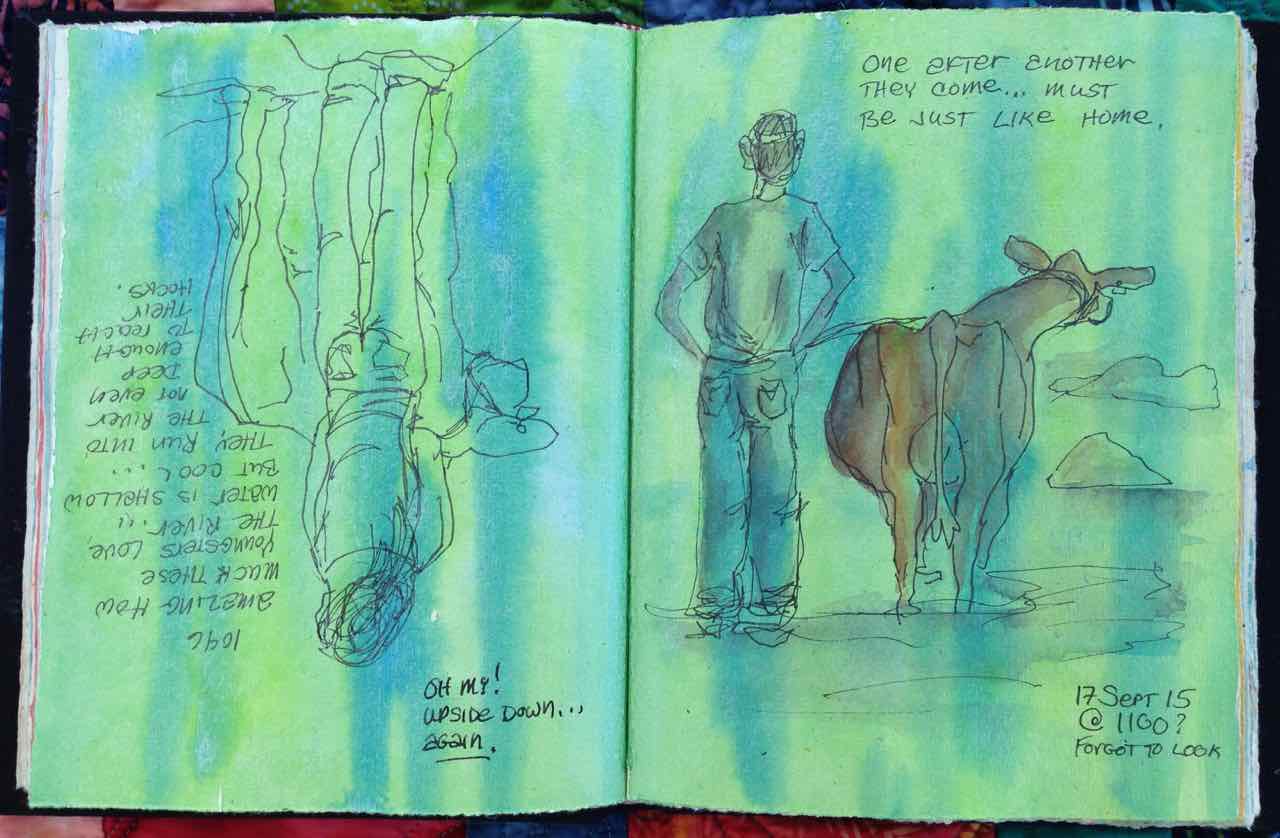 1046
AMAZING HOW
MUCH THESE
YOUNGSTERS LOVE
THE RIVER...
WATER IS SHALLOW
BUT COOL...
THEY RUN INTO
THE RIVER
NOT EVEN
DEEP
ENOUGH
TO REACH
THEIR
HOCKS.
OH MY!
UPSIDE DOWN...
AGAIN.
ONE AFTER ANOTHER
THEY COME... MUST
BE JUST LIKE HOME.
17 SEPT 15
@ 1100?
FORGOT TO LOOK